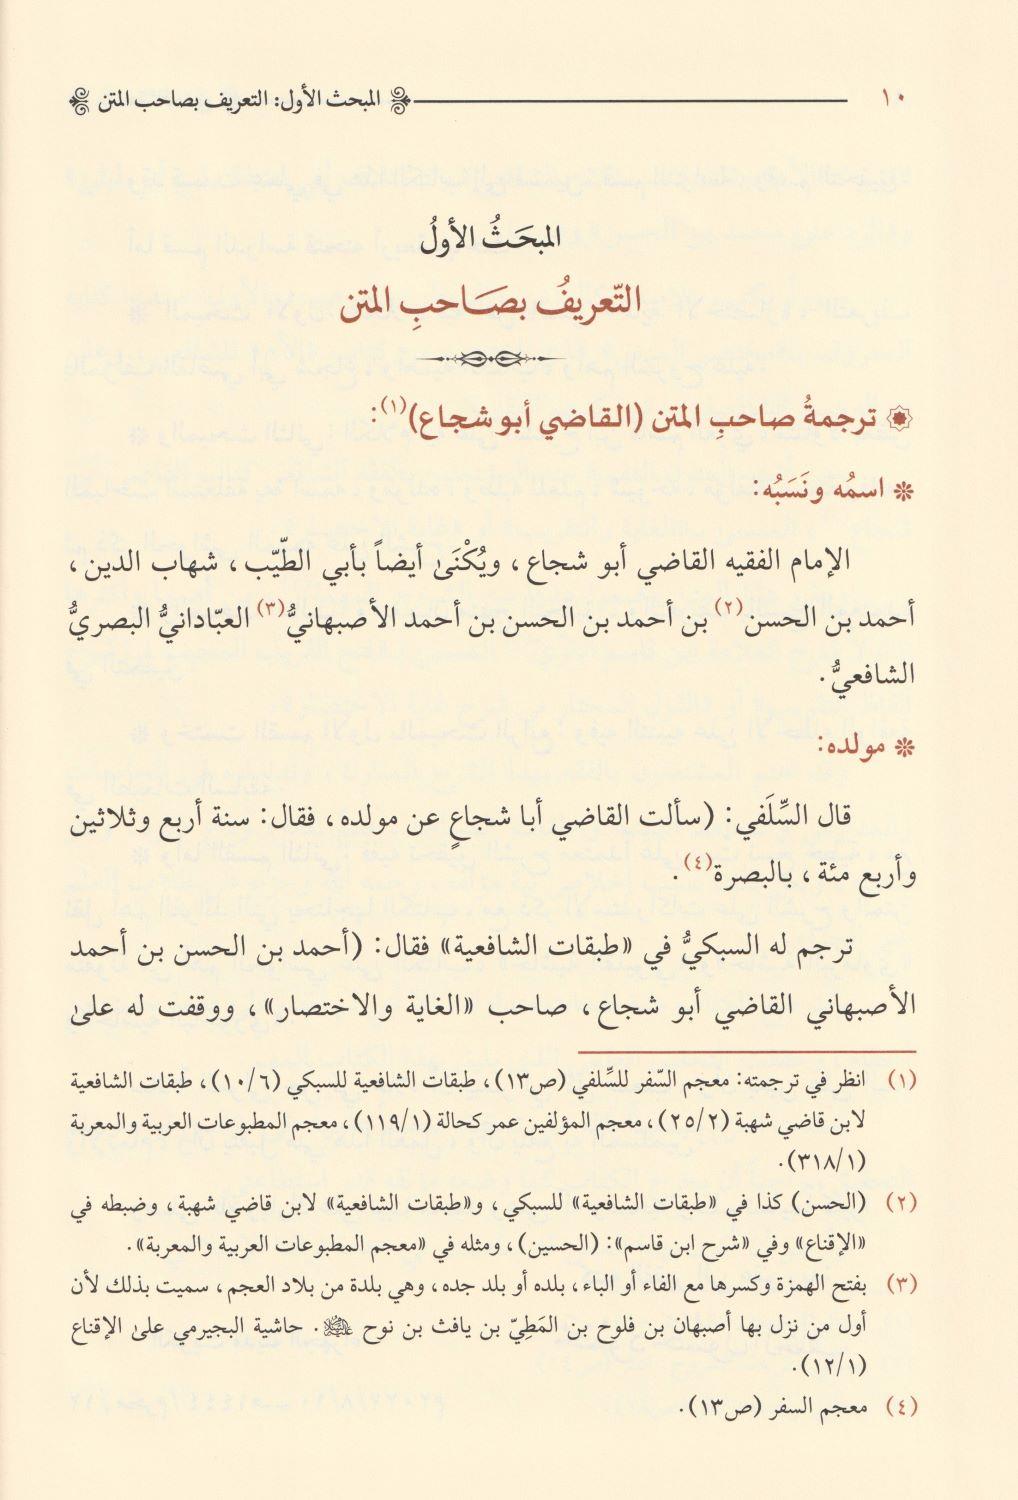 ١٠ المبحث الأول: التعريف بصاحب المتن
المبحَثُ الأولُ
التّعريفُ بصَاحبِ المتن
ترجمةُ صاحبِ المتن (القاضي أبو شجاع)(١):
* اسمُه ونَسَبُه:
الإمام الفقيه القاضي أبو شجاع، ويُكْنَىٰ أيضاً بأبي الطّيّب، شهاب الدين،
أحمد بن الحسن(٢) بن أحمد بن الحسن بن أحمد الأصبهانيُّ(٣) العبّادانيُّ البصريُّ
الشافعيُّ.
* مولده:
قال السِّلَفي: (سألت القاضي أبا شجاعٍ عن مولده، فقال: سنة أربع وثلاثين
وأربع مئة، بالبصرة(٤).
ترجم له السبكيُّ في «طبقات الشافعية» فقال: (أحمد بن الحسن بن أحمد
الأصبهاني القاضي أبو شجاع، صاحب «الغاية والاختصار»، ووقفت له علىٰ
(١) انظر في ترجمته: معجم السّفر للسِّلفي (ص١٣)، طبقات الشافعية للسبكي (١٠/٦)، طبقات الشافعية
لابن قاضي شهبة (٢٥/٢)، معجم المؤلفين عمر كحالة (١١٩/١)، معجم المطبوعات العربية والمعربة
(٣١٨/١).
(٢) (الحسن) كذا في «طبقات الشافعية» للسبكي، و«طبقات الشافعية» لابن قاضي شهبة، وضبطه في
«الإقناع» وفي «شرح ابن قاسم»: (الحسين)، ومثله في «معجم المطبوعات العربية والمعربة».
(٣) بفتح الهمزة وكسرها مع الفاء أو الباء، بلده أو بلد جده، وهي بلدة من بلاد العجم، سميت بذلك لأن
أول من نزل بها أصبهان بن فلوح بن المَطِيّ بن يافث بن نوح عليه السلام. حاشية البجيرمي علىٰ الإقناع
(١٢/١).
(٤) معجم السفر (ص١٣).